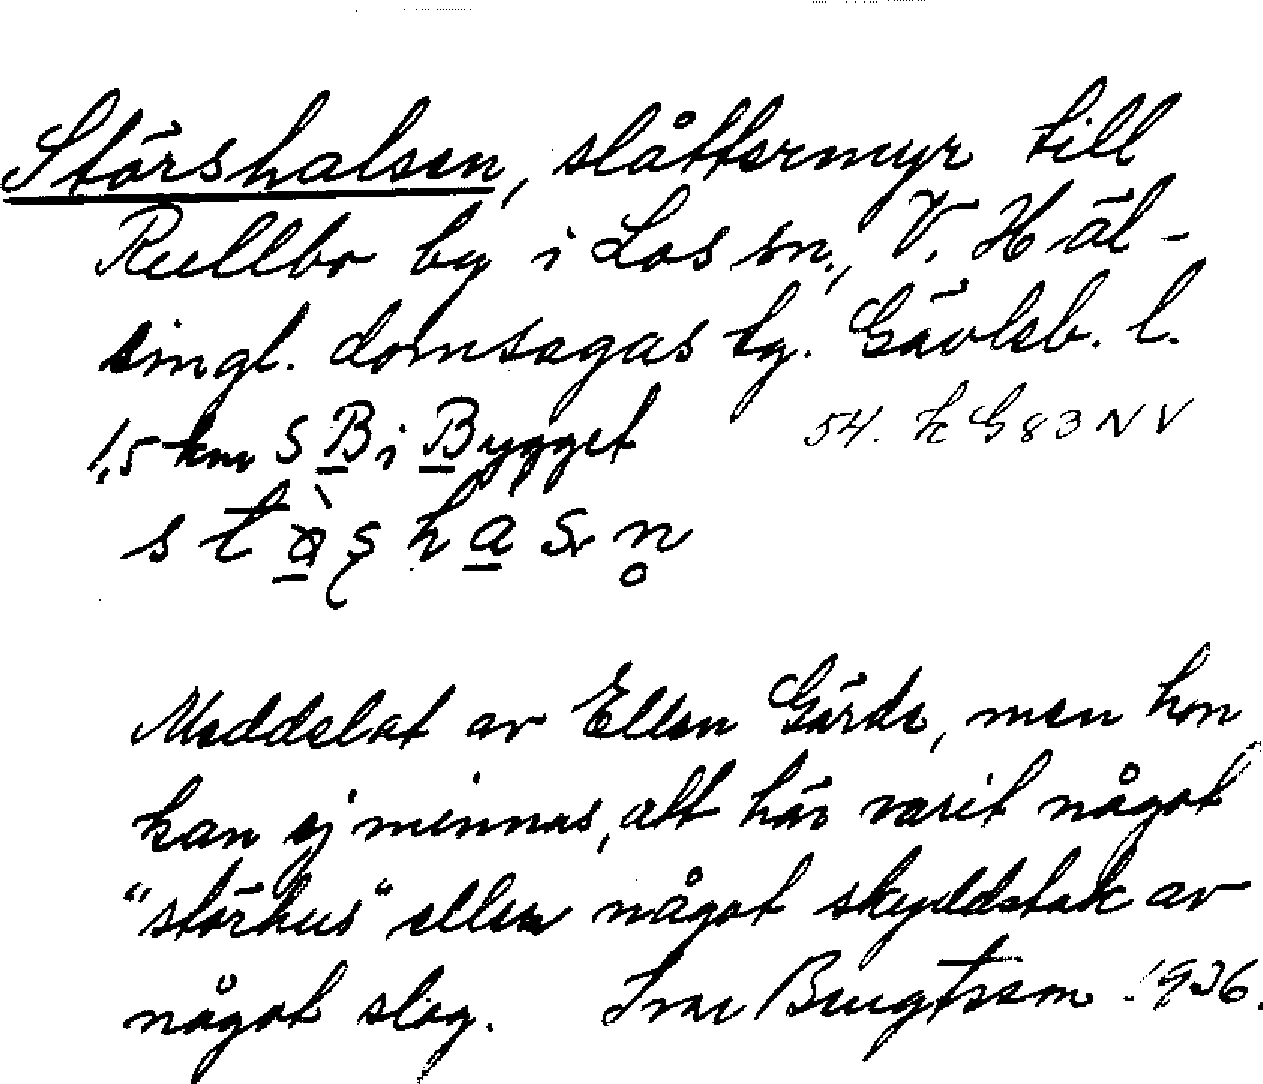 Störshalsen, slåttermyr till
Rullbo by i Los sn., V. Häl-
singl. domsagas tg. Gävleb. l.
1,5 km S B i Bygget 54. k G 83 NV
Meddelat av Ellen Gärde, men hon
kan ej minnas, att här varit något
"störhus" eller något skyddstak av
något slag. Ivar Bengtsson 1936.